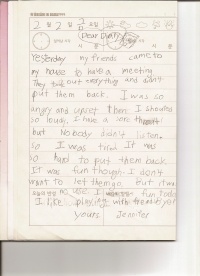 2월 2일 금요일
Dear Diary
Yesterday my friends came to
my house to have a meeting
They take out everything and didn't
put them back. I was so
angry and upset then I shouted
so loudly. I have a sore throat
but Nobody didn't listen.
so I was tired. It was
so hard to put them back.
It was fun though. I don't
want to let them go. but it was
no use. fun
I like playing with
yours Jennifer